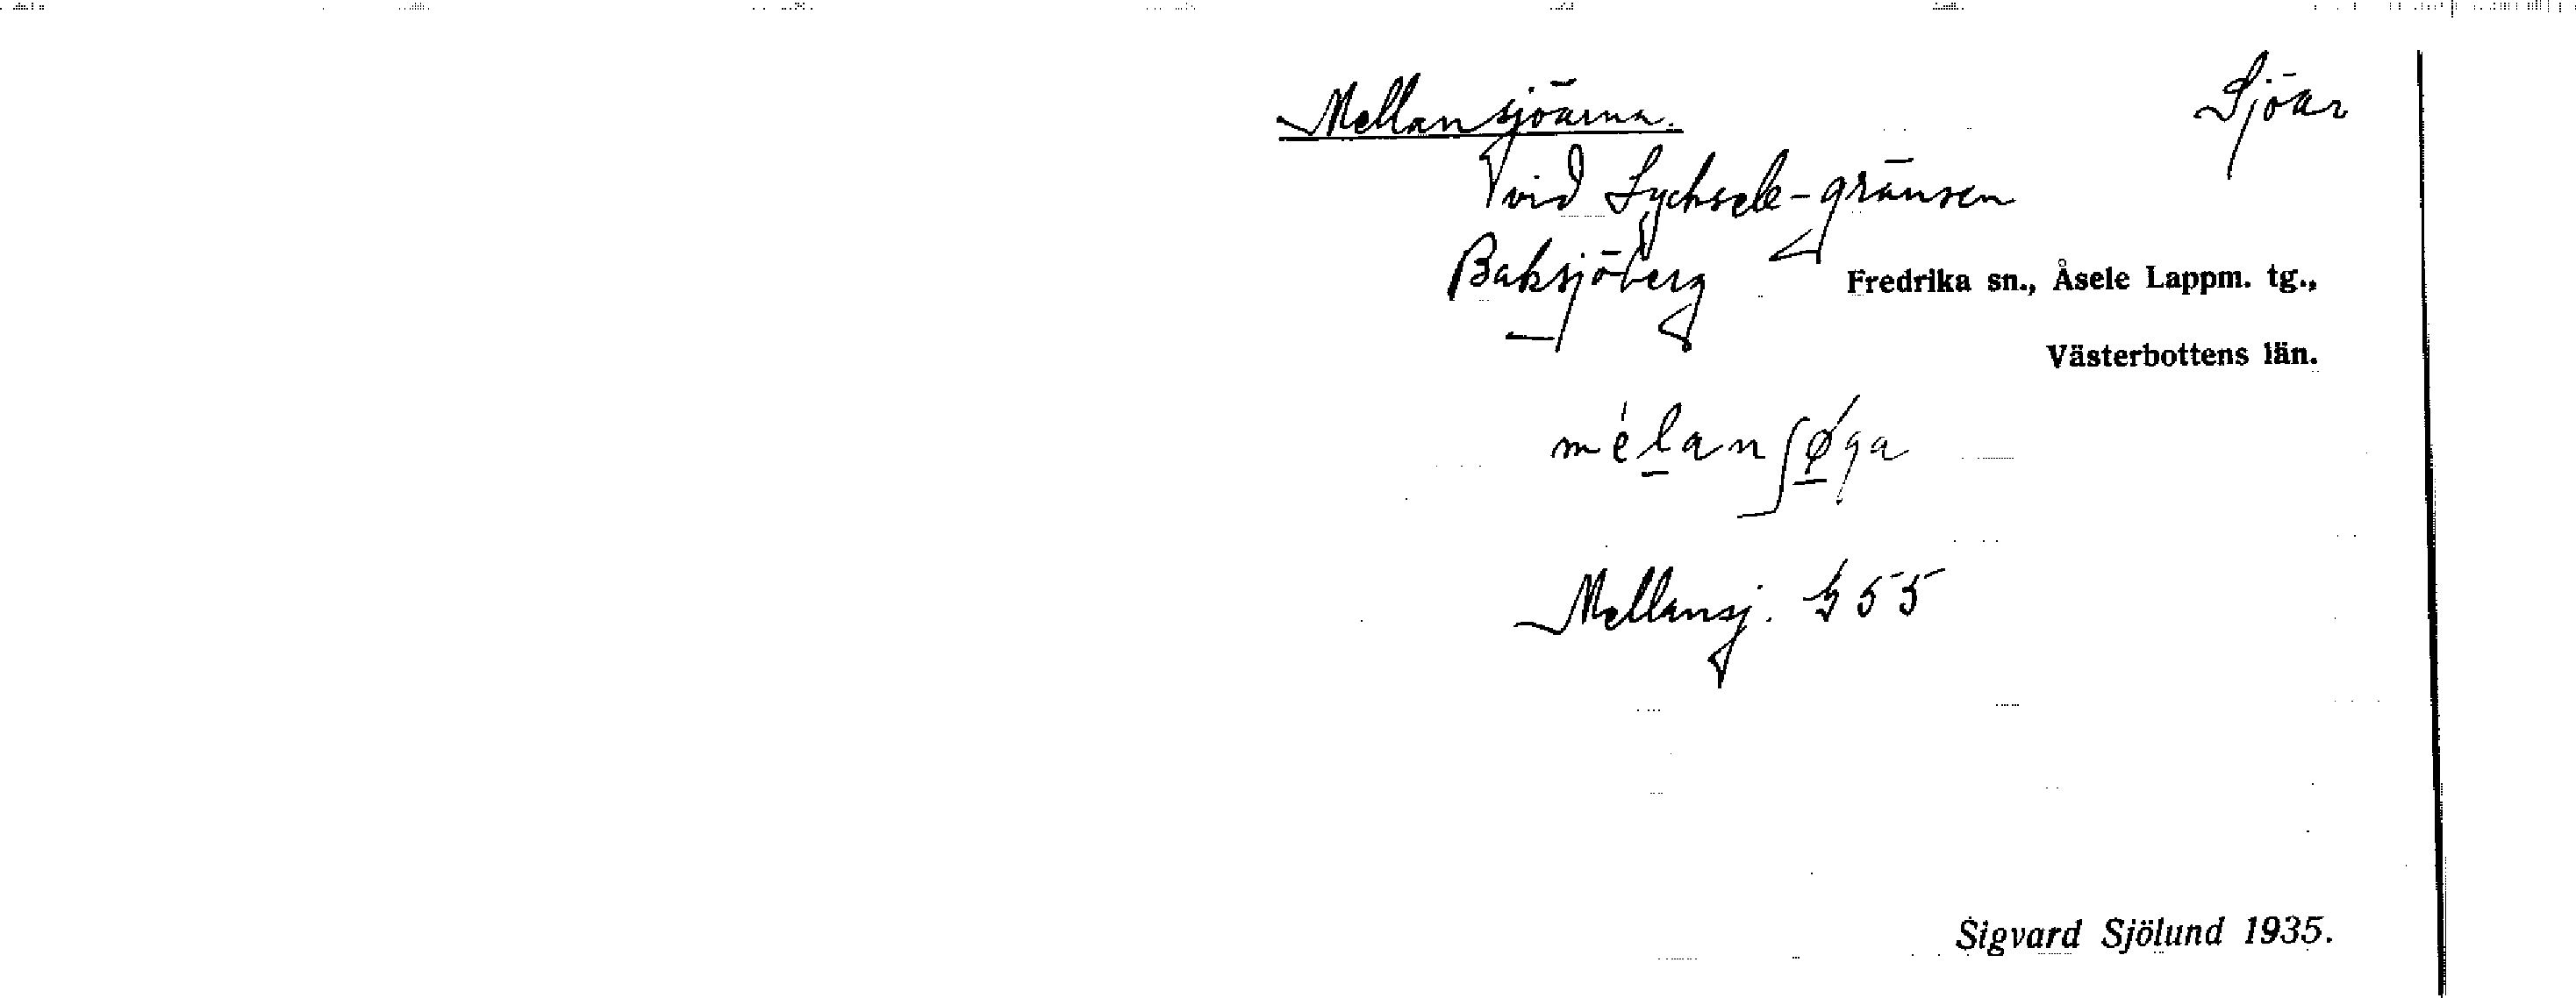 Mellansjöarna. Sjöar
vid Lycksele-gränsen
Baksjöberg Fredrika sn., Åsele Lappm. tg.,
Västerbottens län.
mélanʃǿ̱ga
Mellansj. § 55
Sigvard Sjölund 1935.